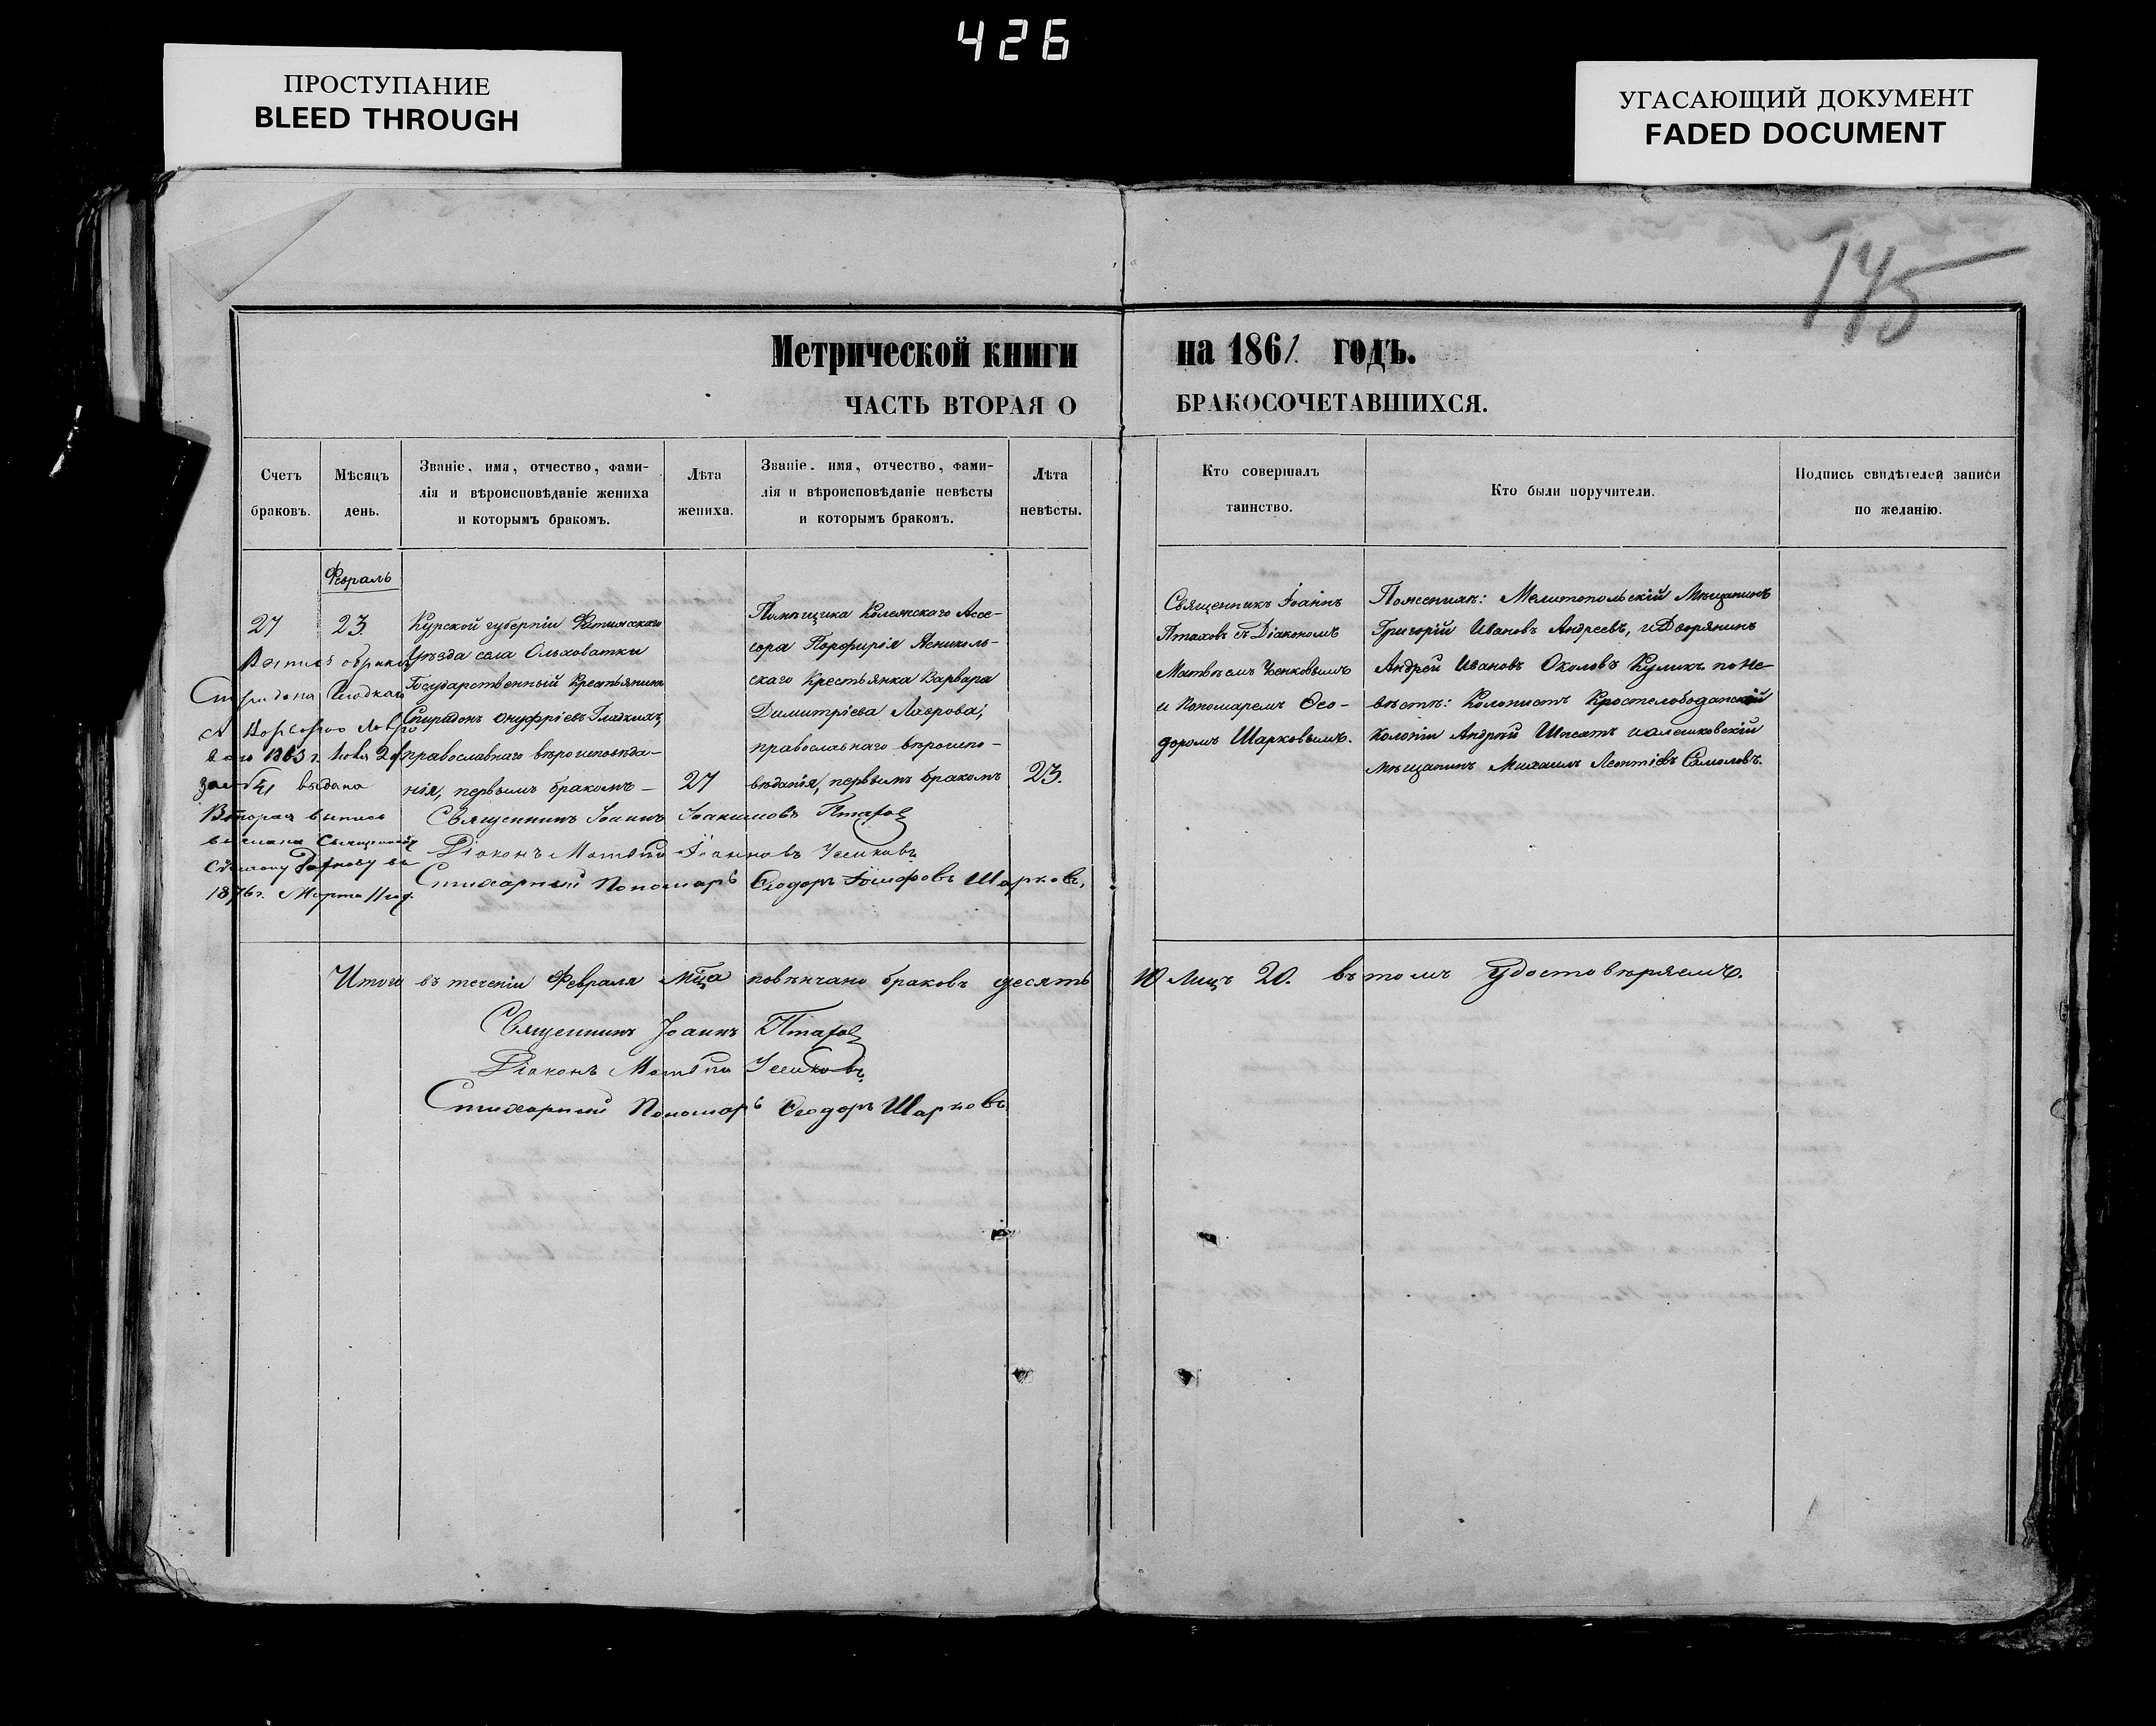 426
ПРОСТУПАНИЕ
BLEED THROUGH
УГАСАЮЩИЙ ДОКУМЕНТ
FADED DOCUMENT
145
Метрической книги на 1861 годъ.
ЧАСТЬ ВТОРАЯ О БРАКОСОЧЕТАВШИХСЯ.
Счетъ
браковъ.
Мѣсяцъ
день.
Званіе, имя, отчество, фами-
лія и вѣроисповѣданіе жениха
и которымъ бракомъ.
Лѣта
жениха.
Званіе, имя, отчество, фами-
лія и вѣроисповѣданіе невѣсты
и которымъ бракомъ.
Лѣта
невѣсты.
Кто совершалъ
таинство.
Кто были поручители.
Подпись свидѣтелей записи
по желанію.
Февраль
27
23.
Курской губерніи Фатижскаго
Уѣзда села Ольховатки
Государственный Крестьянинъ
Спиридонъ Онуфріевъ Гладкихъ,
православнаго вѣроисповѣда-
нія, первымъ бракомъ –
27
Помѣщика Колежскаго Ассе-
сора Порфирія Ясниколь-
скаго Крестьянка Варвара
Димитріева Лаврова,
православнаго вѣроиспо-
вѣданія, первымъ бракомъ
23.
Священникъ Іоаннъ
Птаховъ съ Діакономъ
Матвѣемъ
и Пономаремъ Ѳео-
доромъ Шарковымъ.
По женихѣ: Мелитопольскій Мѣщанинъ
Григорій Ивановъ Андреевъ, и Дворянинъ
Андрей Ивановъ Околовъ Куликъ, по не-
вѣстѣ: Колонистъ
Колоніи Андрей и Алешковскій
Мѣщанинъ Михаилъ Леонтіевъ
Выпись о бракѣ
Спиридона Гладкаго
съ
1863 г. Іюня
за № 41 выдана
Вторая выпись
выслана Священнику
1876 г. Марта 11
Священникъ Іоаннъ Іоакимовъ Птахов
Діаконъ Матвѣй Іоанновъ
Стихарный Пономарь Ѳеодоръ Іосифовъ Шарковъ,
Итого въ теченіи Февраля мца повѣнчано браковъ десять 10 Лицъ 20. въ томъ удостовѣряемъ.
Священникъ Іоаннъ Птахов
Діаконъ Матвѣй
Стихарный Пономарь Ѳеодоръ Шарковъ